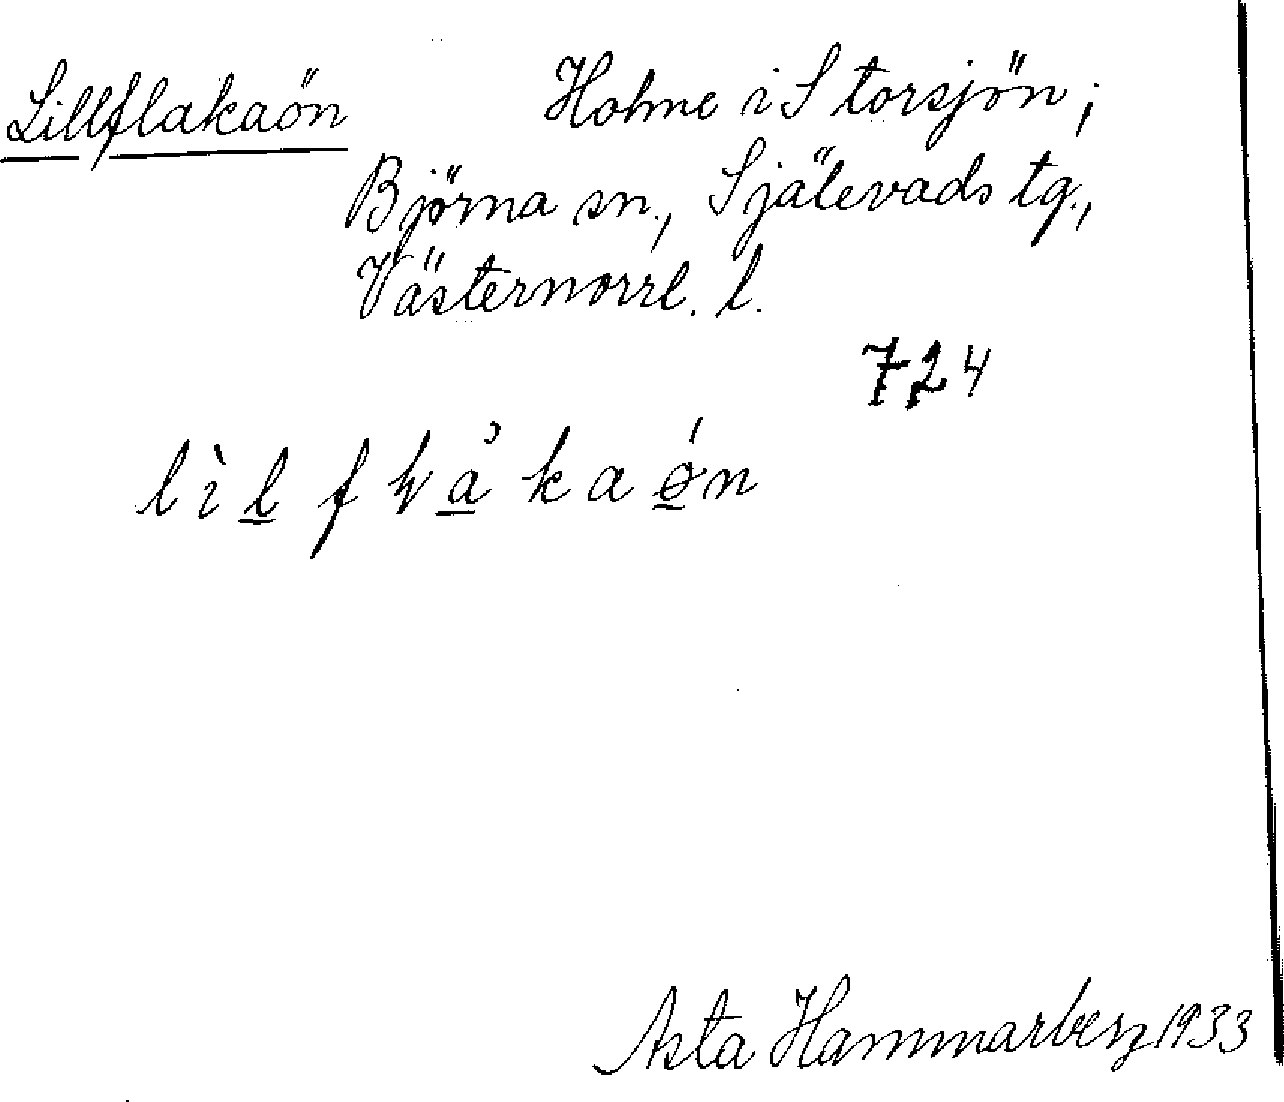 Lillflakaön Holme i Storsjön;
Björna sn., Själevads tg.,
Västernorrl. l.
724
Asta Hammarberg 1933